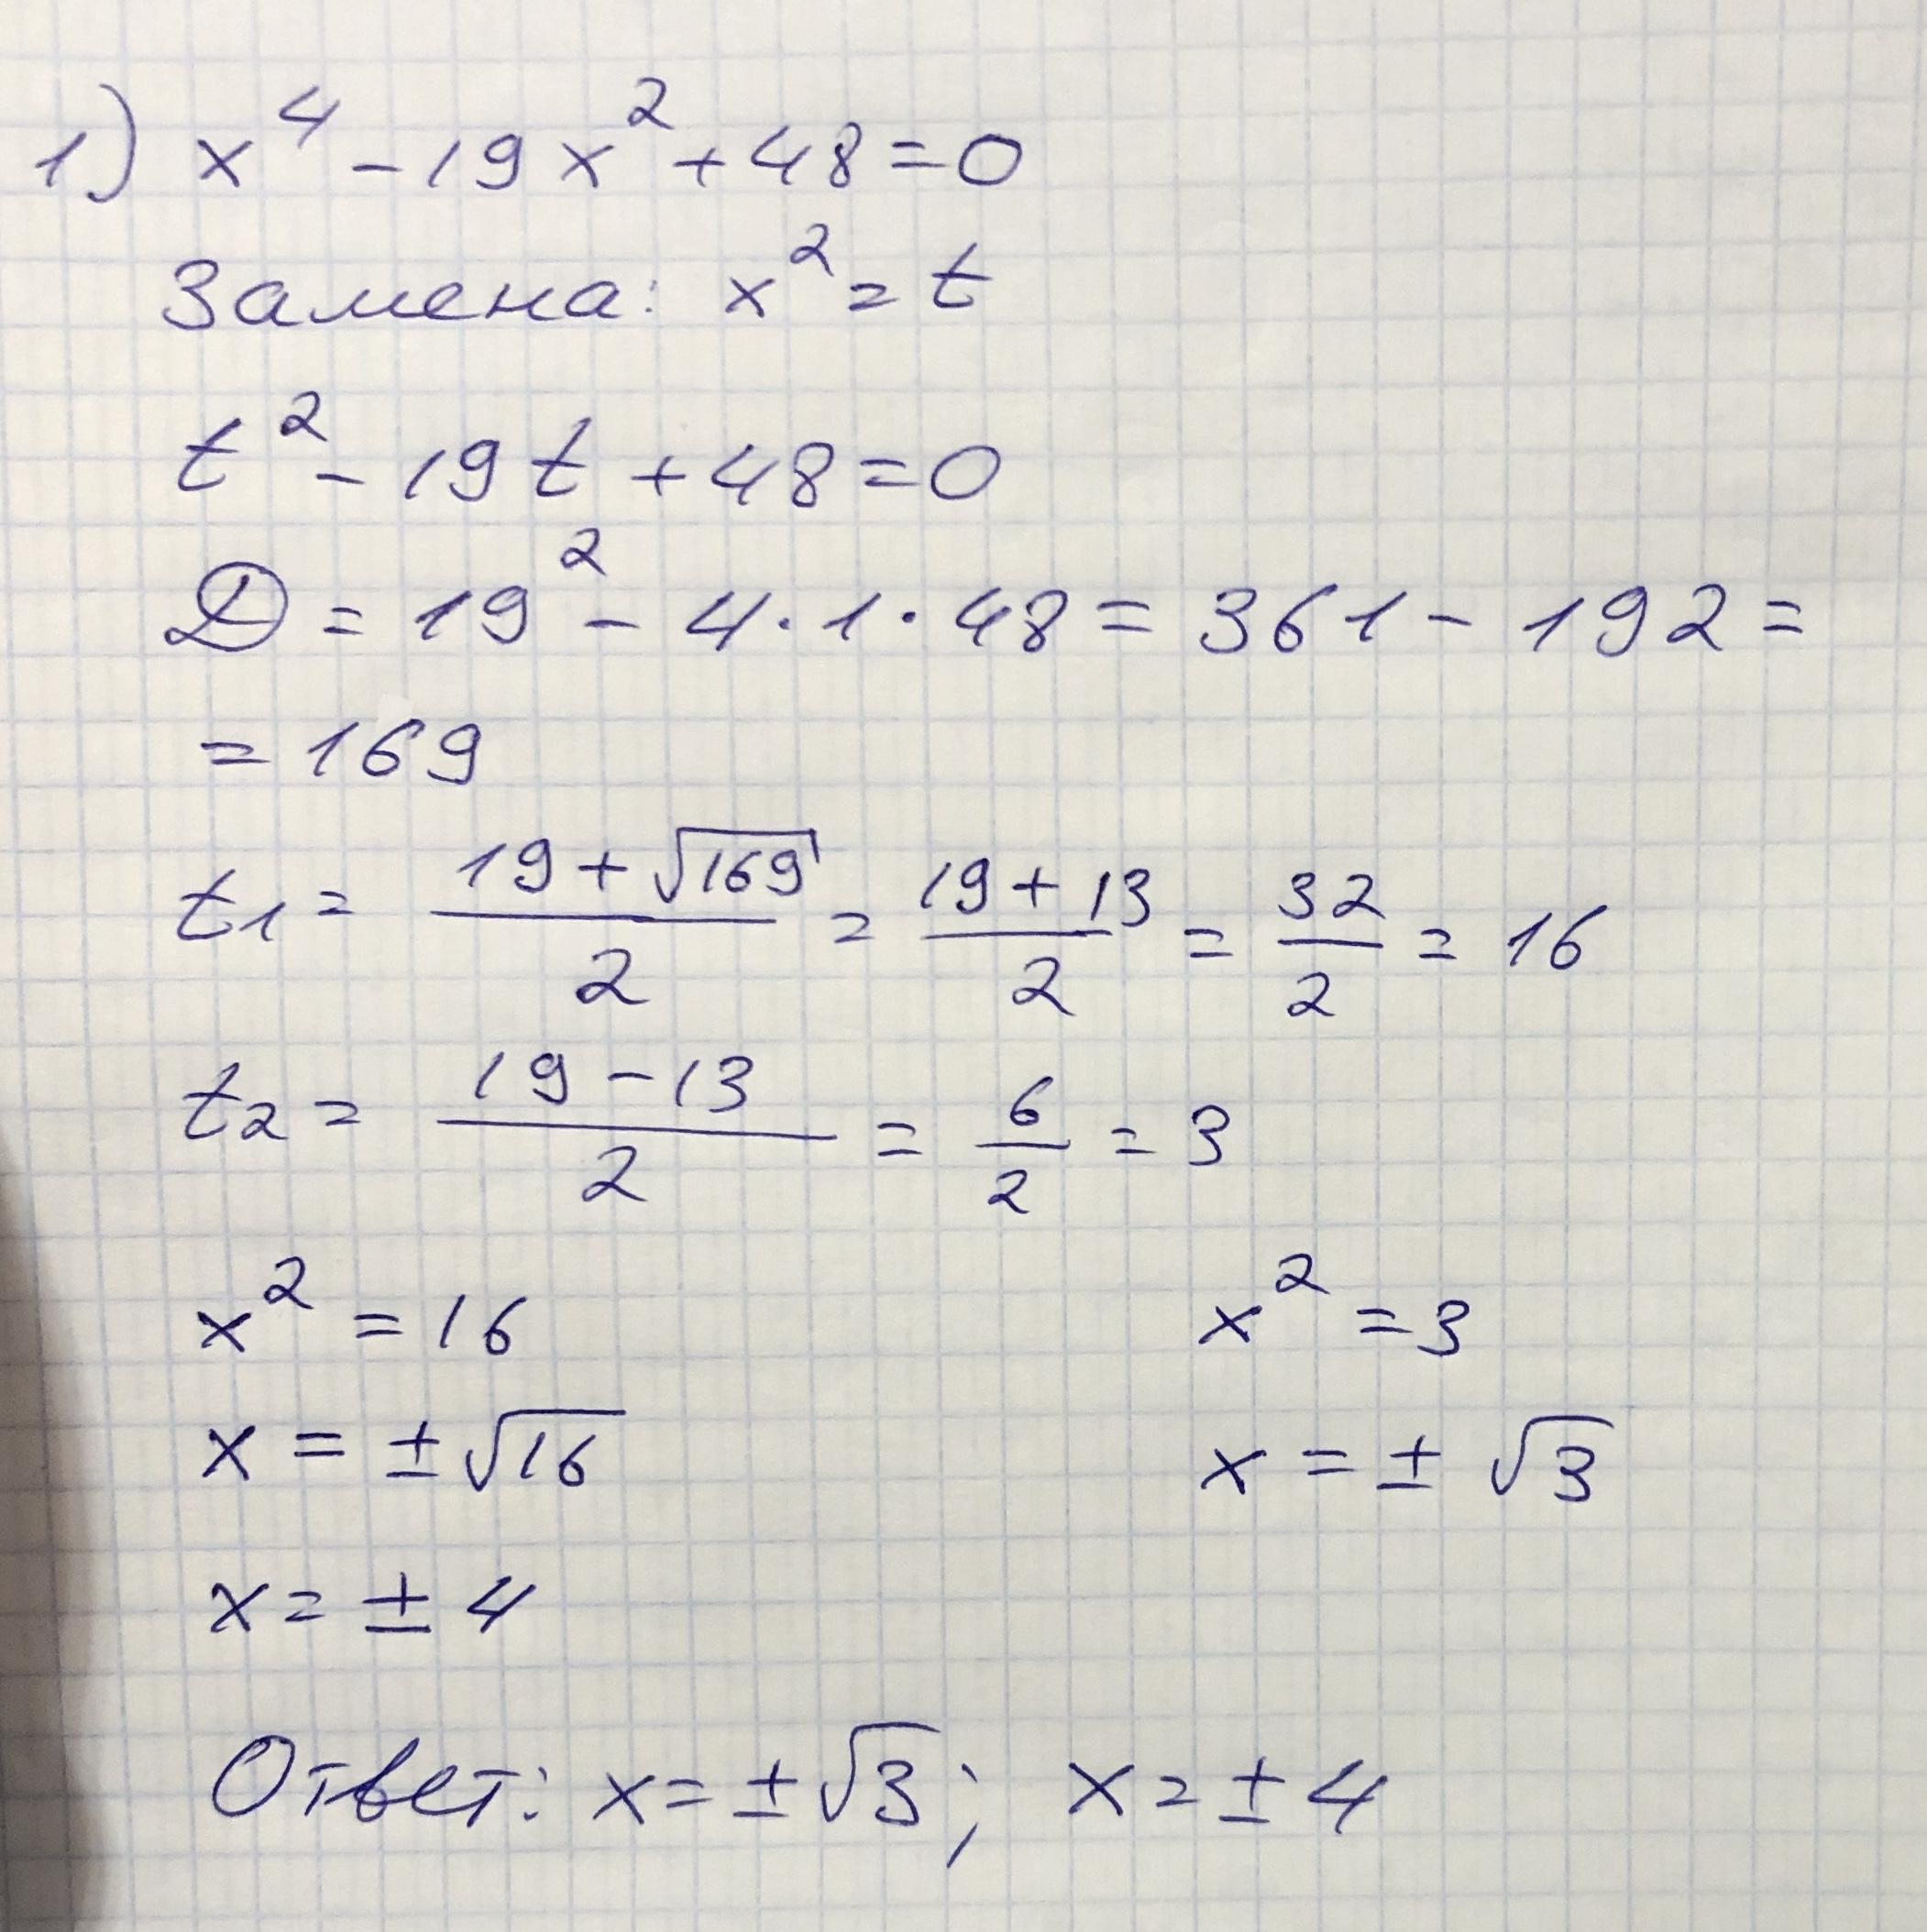 1) x⁴ - 19x² + 48 = 0
Замена: x² = t
t² - 19t + 48 = 0
D = 19² - 4·1·48 = 361 - 192 =
= 169
t₁ = (19 + √169)/2 = (19 + 13)/2 = 32/2 = 16
t₂ = (19 - 13)/2 = 6/2 = 3
x² = 16    x² = 3
x = ±√16    x = ±√3
x = ±4
Ответ: x = ±√3; x = ±4